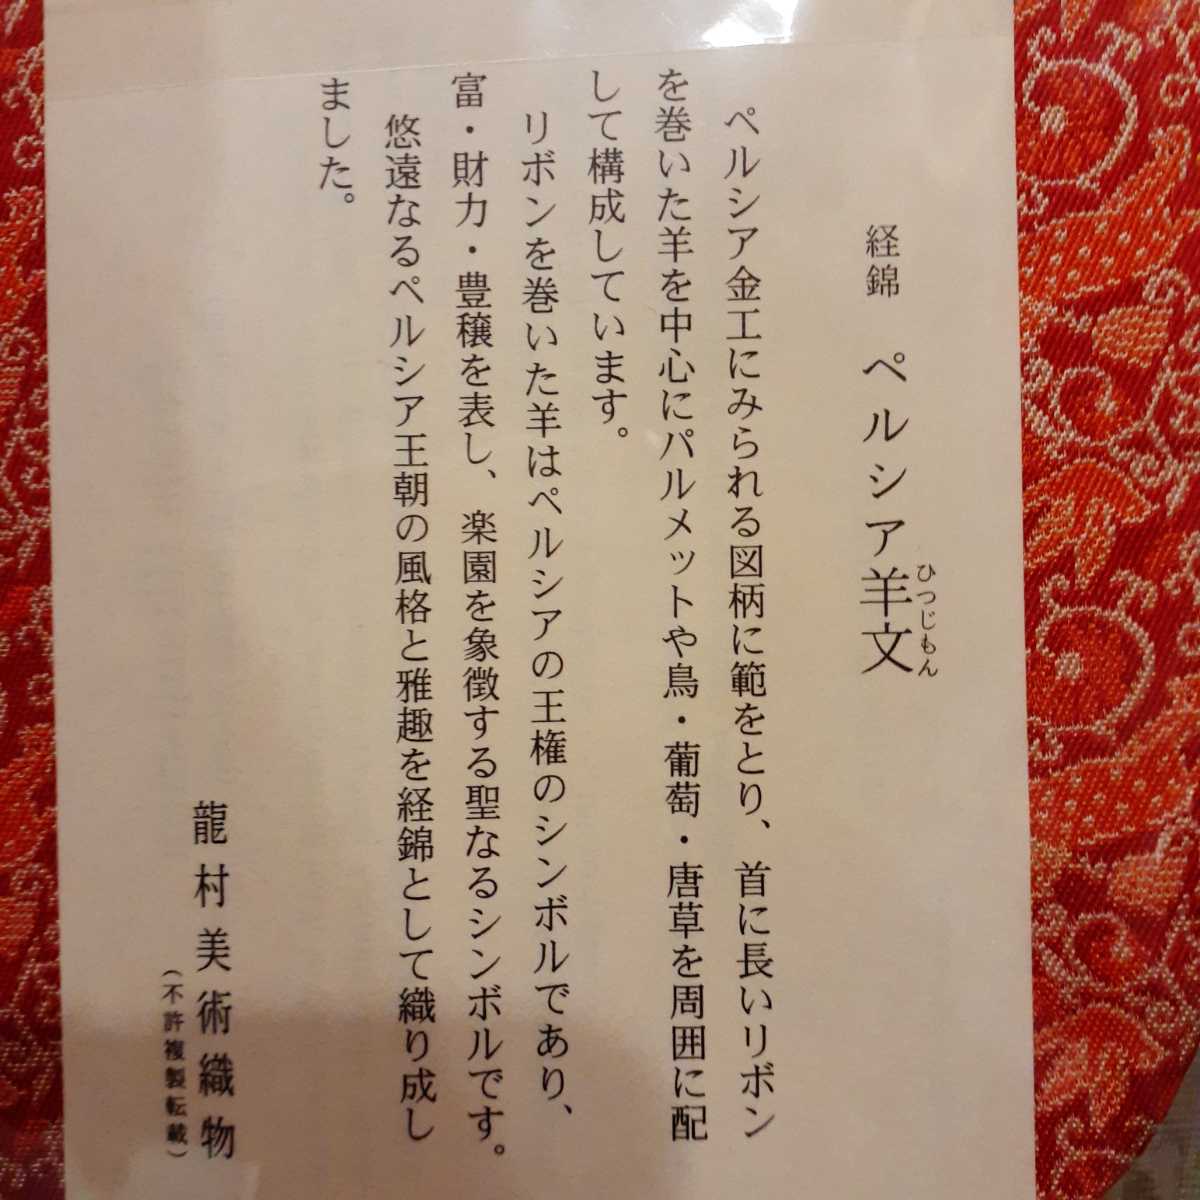 経錦 ペルシア羊文
ひつじもん
ペルシア金工にみられる図柄に範をとり、首に長いリボン
を巻いた羊を中心にパルメットや鳥・葡萄・唐草を周囲に配
して構成しています。
リボンを巻いた羊はペルシアの王権のシンボルであり、
富・財力・豊穣を表し、楽園を象徴する聖なるシンボルです。
悠遠なるペルシア王朝の風格と雅趣を経錦として織り成し
ました。
龍村美術織物
(不許複製転載)